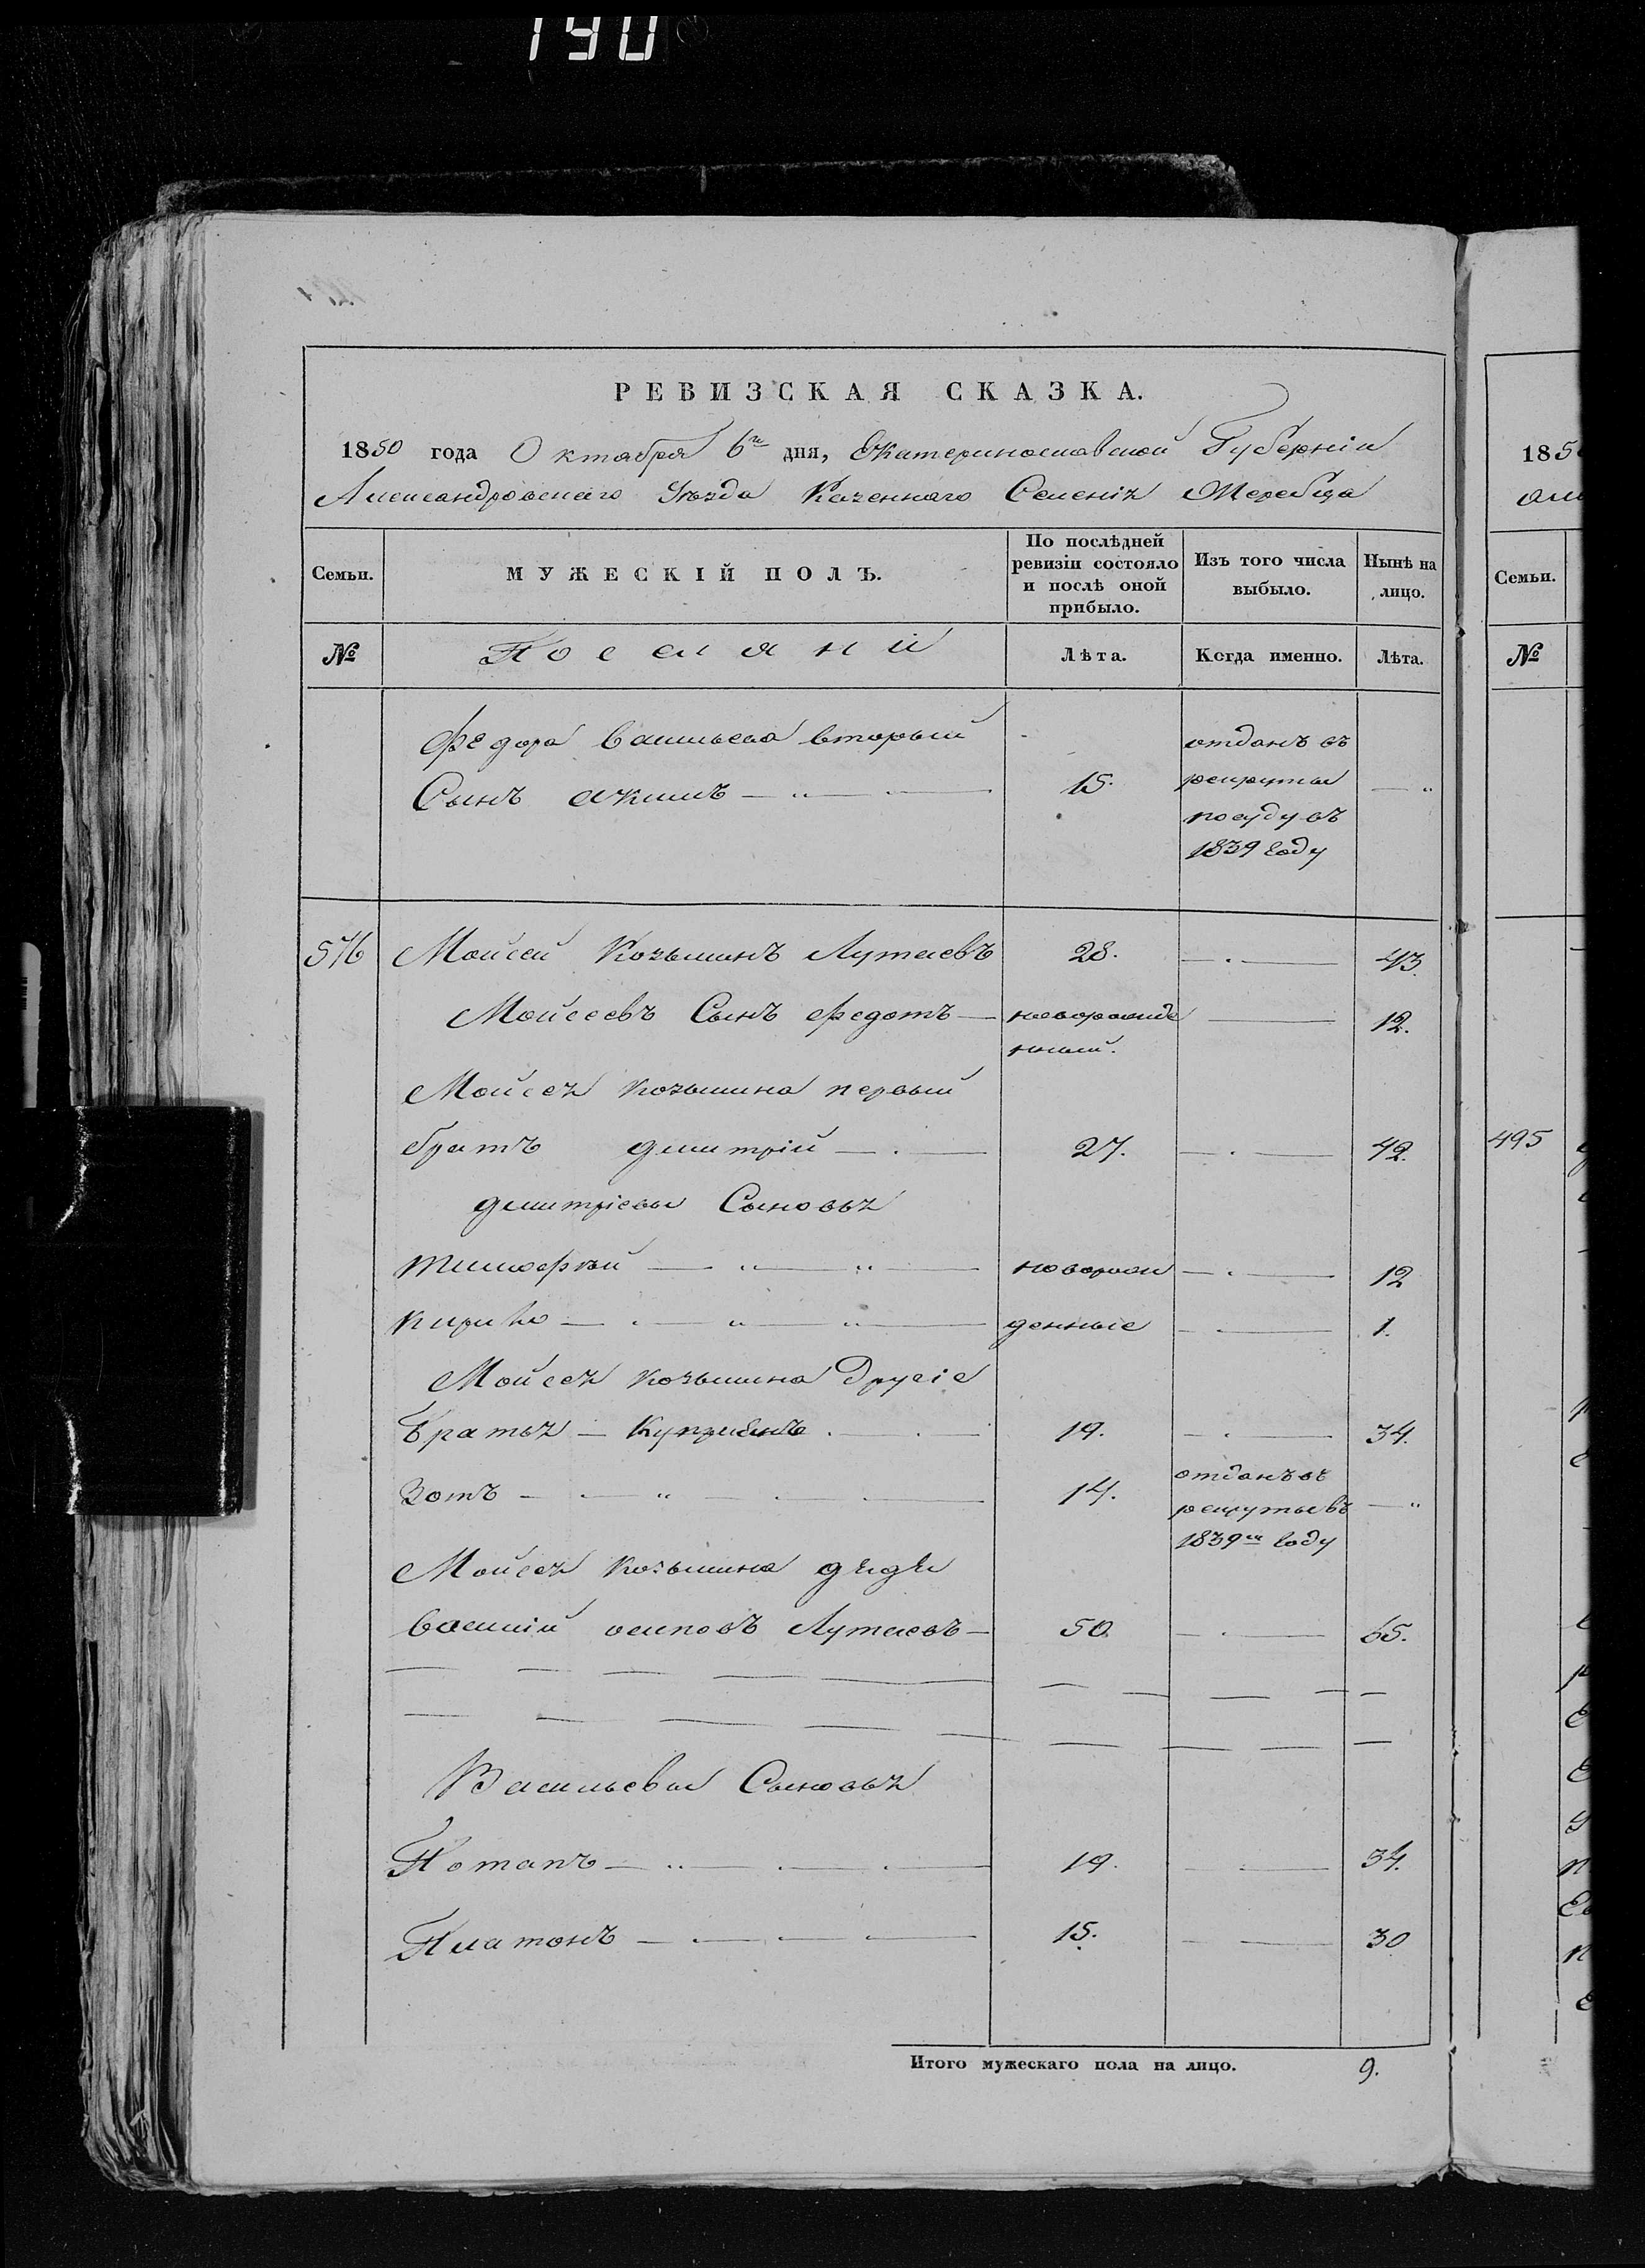 190
РЕВИЗСКАЯ СКАЗКА.
1850 года Октября 6го дня, Екатеринославской Губерніи
Александровскаго Уѣзда Казеннаго Селенія Жеребца
Семьи.
МУЖЕСКІЙ ПОЛЪ.
По послѣдней ревизіи состояло и послѣ оной прибыло.
Изъ того числа выбыло.
Нынѣ на лицо.
№
Поселяни
Лѣта.
Когда именно.
Лѣта.
Федора Васильева вторый
Сынъ Акимъ 15. отданъ въ рекруты по суду въ 1839 году
Мойсей Козьминъ Лутаевъ 28. 43.
Мойсеевъ Сынъ Федотъ новорожде нный. 12.
Мойсея Козьмина первый
братъ Дмитрій 27. 42.
Дмитріевы Сыновья
Тимофей новорож 12
Кирило денные 1.
Мойсея Козьмина Другіе
Братья — Купріянъ 19. 34.
Зотъ 14. отданъ въ рекруты въ 1839м году
Мойсея Козьмина дядя
Василій Осиповъ Лутаевъ 50. 65.
Васильевы Сыновья
Потапъ 19. 34.
Платонъ 15. 30
Итого мужескаго пола на лицо. 9.
185
Семьи.
№
495